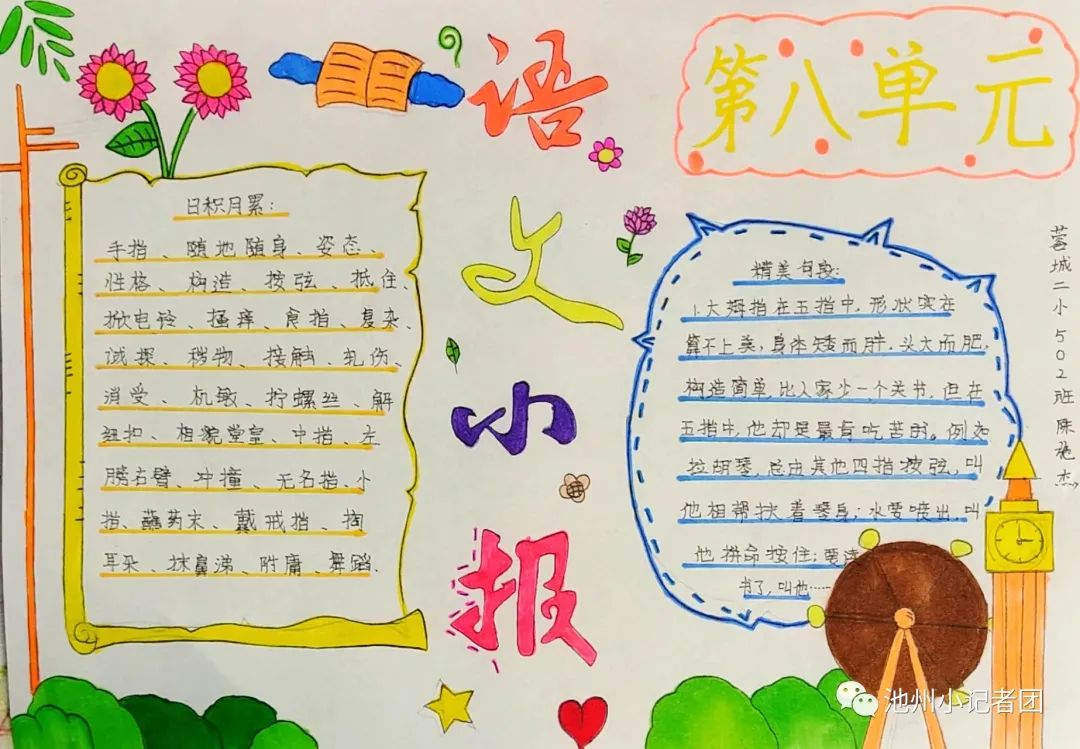 语文小报
第八单元
日积月累：
手指、随地随身、姿态、
性格、构造、按弦、抵住、
揿电铃、搔痒、食指、复杂、
试探、秽物、接触、轧伤、
消受、机敏、拧螺丝、解
纽扣、相貌堂皇、中指、左
膀右臂、冲撞、无名指、小
指、蘸药末、戴戒指、掏
耳朵、抹鼻涕、附庸、舞蹈、
精美句段：
1.大姆指在五指中，形状实在
算不上美，身体矮而胖，头大而肥，
构造简单，比人家少一个关书，但在
五指中，他却是最肯吃苦的。例如
拉胡琴，总由其他四指按弦，叫
他相帮扶着琴身；水要喷出，叫
他拼命按住；要读
书了，叫他……
蓉城二小502班陈 杰
池州小记者团